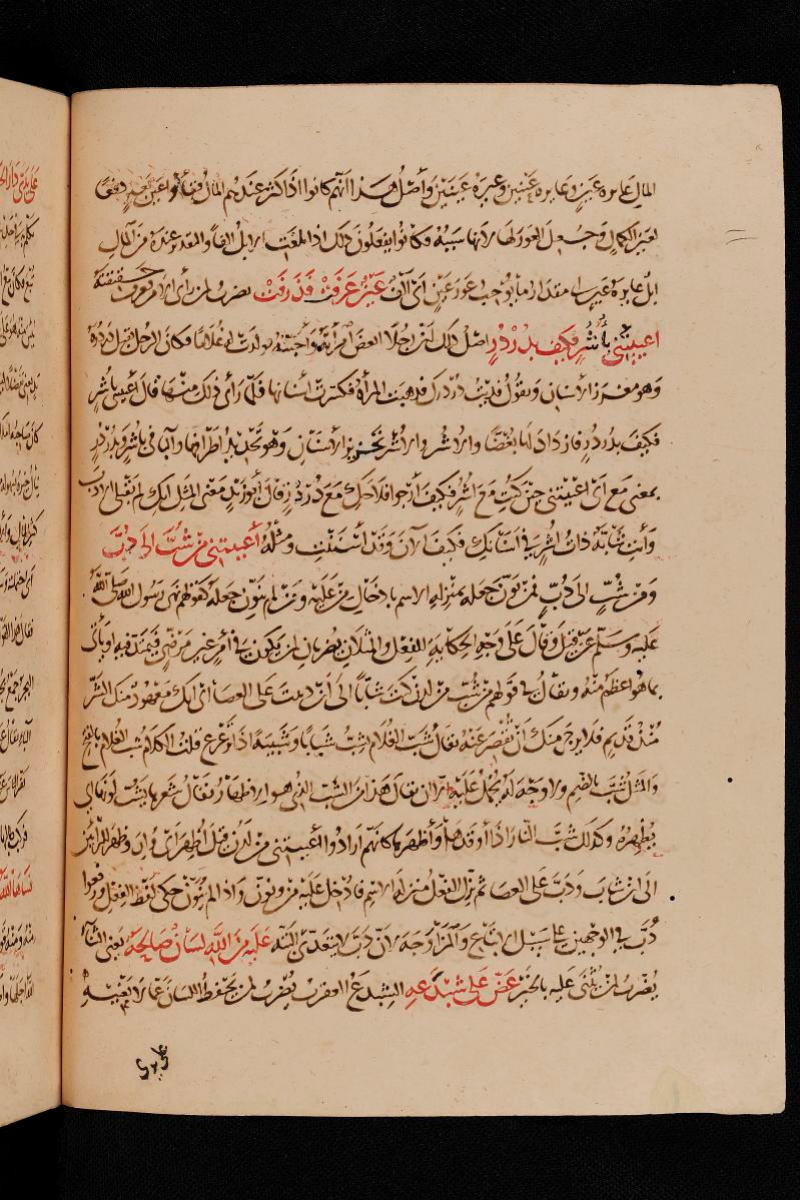 المال عايره عين وعايره عينين وعيره عينين وأصل هذا انهم كانوا اذا كثر عندهم المال فقأوا عين بعير دفعًا
لعين الكمال وجعل العور لها لانها سببه فكانوا يفعلون ذلك اذا بلغت الابل الفا والمعنى عنده من المال
ابل عايرة عين اى مقدار ما يوجب عور عين اى الف عيرٌ عرفت فذرفت يضرب لمن رأى الامر فعرف حقيقته
اعييتني بأُشُر فكيف بدُرْدُر اصل ذلك ان رجلا ابغض امرأته وأحبته فولدت له غلاما فكان الرجل يقبل دردره
وهو مغرز الاسنان ويقول فديت دردرك فذهبت المرأة فكسرت اسنانها فلما رأى ذلك منها قال أعييتني بأشر
فكيف بدردر فازداد لها بغضا والاُشُر والاُشَر تحزيز الاسنان وهو تحديد اطرافها والبا فى باشر وبدردر
بمعنى مع اى اعييتني حين كنت مع أشر فكيف أرجو فلاحك مع دردر قال أبو زيد معنى المثل انك لم تقبلى الادب
وأنت شابة ذات أشر فى اسنانك فكيف الآن وقد أسننت ومثله أعييتني من شُبَّ الى دُبَّ
ومن شُبٍّ الى دُبٍّ فمن نون جعله بمنزلة الاسم بادخال من عليه ومن لم ينون جعله كقولهم نهى رسول الله صلى الله
عليه وسلم عن قيل وقال على وجه الحكاية للفعل والمثلان يضربان لمن يكون فى أمر غير مرضى فيمتد فيه او يأتى
بما هو اعظم منه ويقال فى قولهم من شب من لدن كنت شابًا الى أن دببت على العصا اى انك معهود منك الشر
منذ قديم فلا يرجى منك أن تقصر عنه يقال شب الغلام يشب شبابا وشبيبة اذا ترعرع قلت الكلام شب الغلام بالفتح
والمثل شب بالضم ولا وجه له يحمل عليه الا ان يقال هذا من الشب الذى هو الاظهار يقال شعرها يشب لونها اى
يظهره وكذلك شب النار اذا أوقدها وأظهرها كانهم ارادوا أعييتني من لدن قيل أُظهر اى وُلد وظهر للرائين
الى ان شاب ودب على العصا ثم نزل الفعل منزلة الاسم فادخل عليه من ونون واذا لم ينون حكى لفظ الفعل ورفعوا
دُبّ فى الوجهين على سبيل الاتباع والمزاوجة لان دب لا يتعدى البتة عليه من الله لسان صالحة يعنى الثناء
يضرب لمن يثنى عليه بالخير عض على شبدعه الشبدع العقرب يضرب لمن يحفظ اللسان عما لا يعنيه